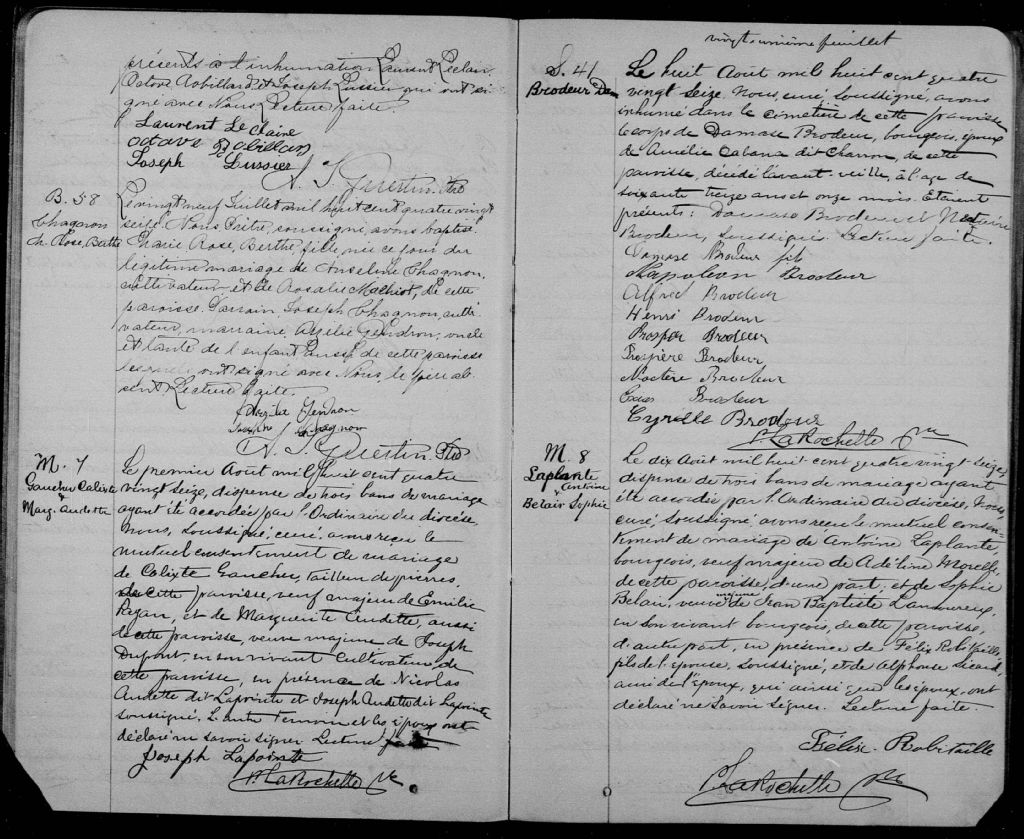 présents à l'inhumation Laurent Leclair
Octave Robillard et Joseph Lussier qui ont si-
gné avec Nous. Lecture faite.
Laurent Leclaire
octave Robillard
Joseph Lussier
B. 58
Chagnon
M. Rose, Berthe
Le vingt neuf Juillet mil huit cent quatre vingt
seize Nous Prêtre, soussigné, avons baptisé
Marie Rose, Berthe, fille née ce jour du
légitime mariage de Anselme Chagnon,
cultivateur et de Rosalie de cette
paroisse. Parrain, Joseph Chagnon, culti-
vateur, marraine, Gendron, oncle
et tante de l'enfant de cette paroisse
lesquels ont signé avec Nous, le père ab-
sent Lecture faite.
Gendron
Joseph Chagnon
M. 7
Gaucher Calixte
&
Marg. Audette
Le premier Août mil huit cent quatre
vingt seize, dispense de trois bans de mariage
ayant été accordée par l'Ordinaire du diocèse
Nous, soussigné, curé, avons reçu le
mutuel consentement de mariage
de Calixte Gaucher, tailleur de pierres,
de cette paroisse, veuf majeur de Emilie
Ryan, et de Marguerite Audette, aussi
de cette paroisse, veuve majeure de Joseph
Dupont, en son vivant cultivateur de
cette paroisse, en présence de Nicolas
Audette dit Lapointe et Joseph Audette dit Lapointe
soussigné. L'autre témoin et les époux ont
déclaré ne savoir signer Lecture faite
Joseph Lapointe
P. LaRochelle Ptre
vingt-unième feuillet
S. 41
Brodeur Dam
Le huit Août mil huit cent quatre
vingt seize, Nous, curé, soussigné, avons
inhumé dans le cimetière de cette paroisse
le corps de Damase Brodeur, bourgeois, époux
de Amélie Cabana dit Charron, de cette
paroisse, décédé l'avant-veille, à l'age de
soixante treize ans et onze mois. Etaient
présents: Damase Brodeur et Nectaire
Brodeur, soussignés. Lecture faite.
Damase Brodeur fils
Napoleon Brodeur
Alfred Brodeur
Henri Brodeur
Brodeur
Prospère Brodeur
Brodeur
Brodeur
Cyrille Brodeur
P. LaRochelle Ptre
M. 8
Laplante
& Antoine
Belair Sophie
Le dix Août mil huit cent quatre vingt-seize,
dispense de trois bans de mariage ayant
été accordée par l'Ordinaire du diocèse, Nous,
curé, soussigné, avons reçu le mutuel consen-
tement de mariage de Antoine Laplante,
bourgeois, veuf majeur de Adéline Morelle,
de cette paroisse, d'une part, et de Sophie
Belair, veuve majeure de Jean Baptiste Lamoureux,
en son vivant bourgeois, de cette paroisse,
d'autre part, en présence de Félix Robitaille,
fils de l'épouse, soussigné, et de Alphonse Sicard,
ami de l'époux, qui ainsi que les époux, ont
déclaré ne savoir signer. Lecture faite.
Félix Robitaille
P. LaRochelle Ptre